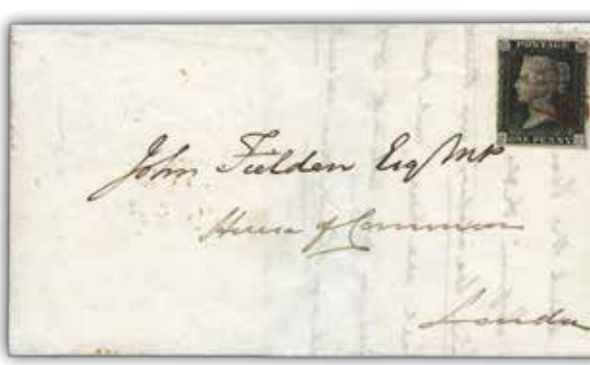 POSTAGE
ONE PENNY
John Fielden Esq MP
House of Commons
London